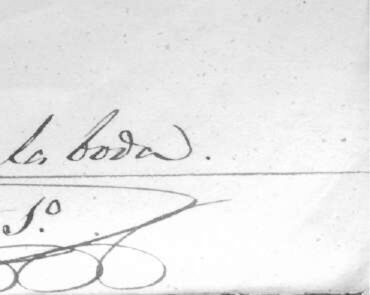 la boda.
1º.